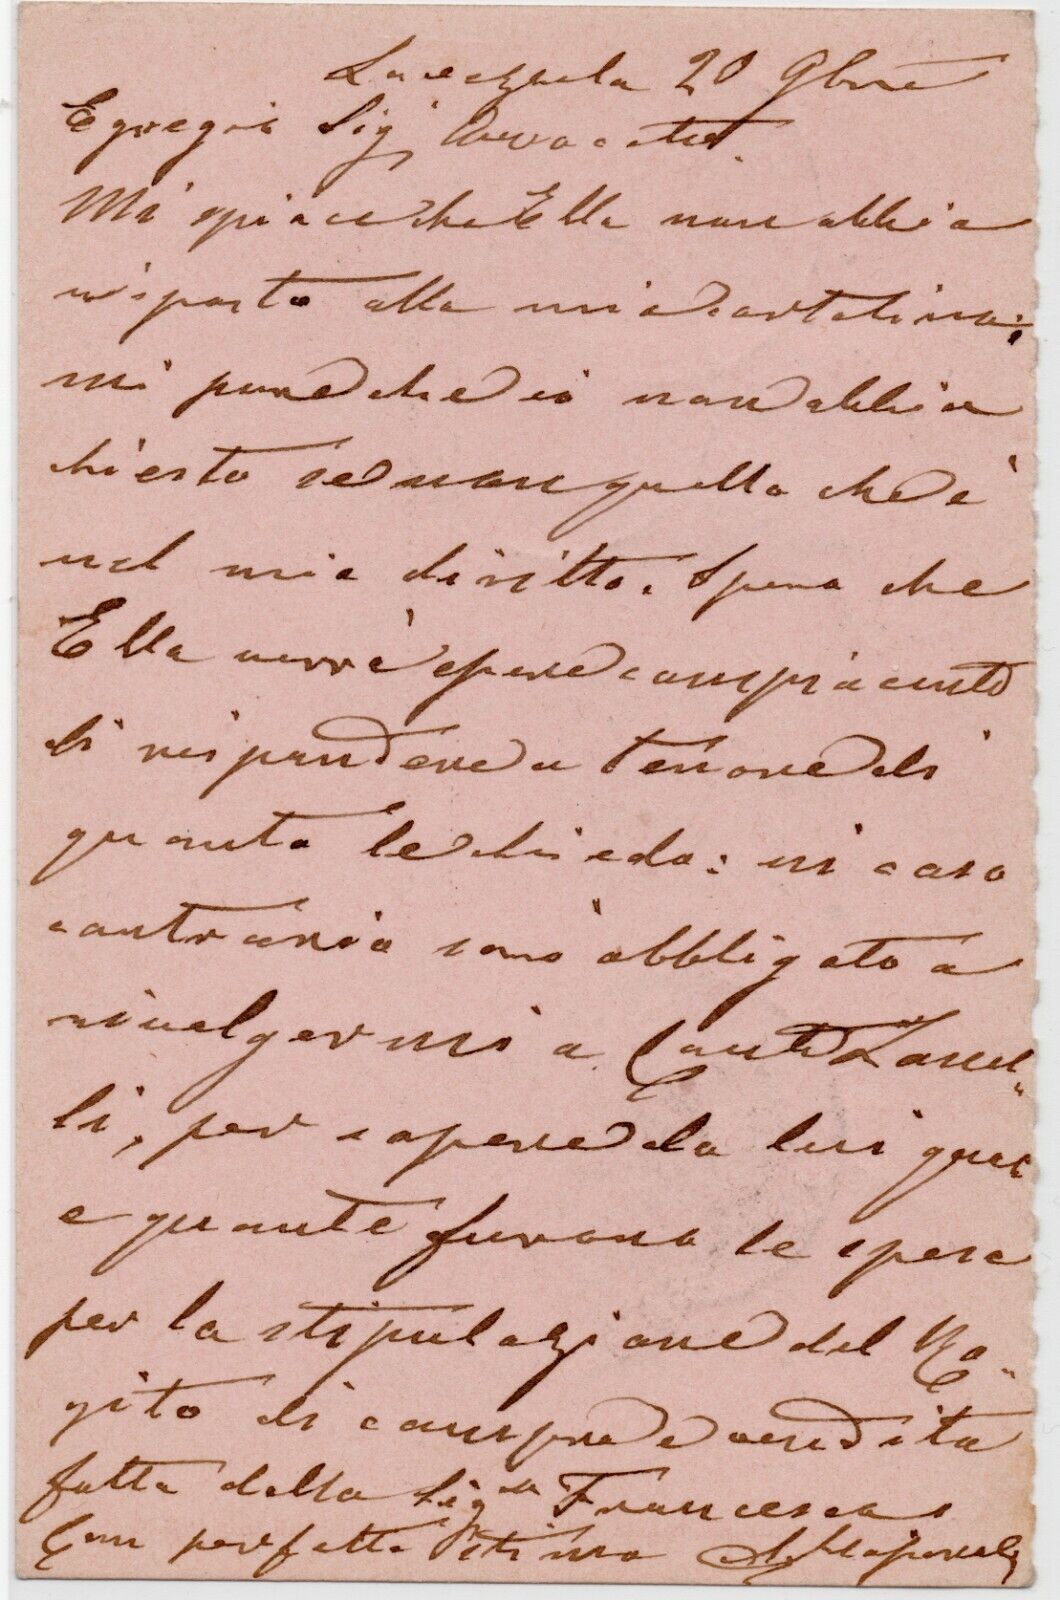 20 9bre
Egregio Sig. Avvocato.
Mi spiace che Ella non abbia
risposto alla mia cartolina;
mi pare che io non abbia
chiesto se non quello che è
nel mio diritto. Spero che
Ella vorrà essere compiacente
di rispondere a tenore di
quanto le chiedo: in caso
contrario sono obbligato a
rivolgermi a Conte Zanel-
li, per sapere da lui quali
e quante furono le spese
per la stipulazione del Ro-
gito di compra e vendita
fatta dalla Sigra Francesca
Con perfetta stima